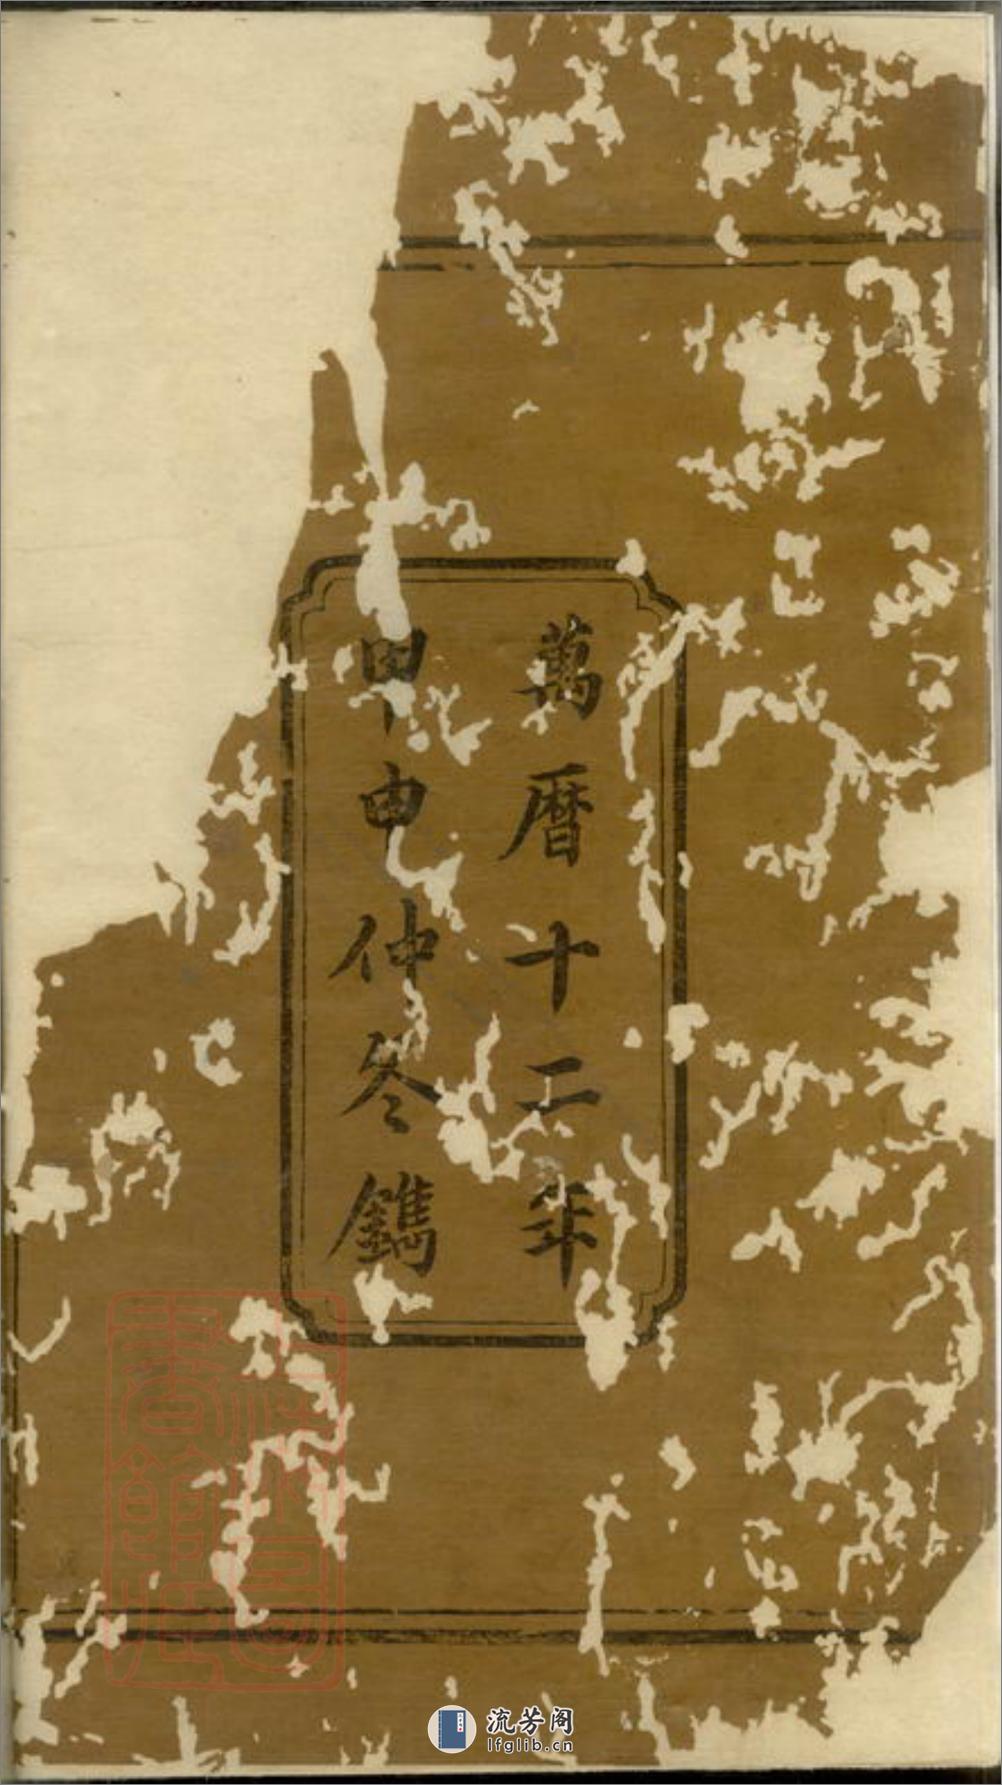 萬曆十二年
甲申仲冬鐫
流芳阁
lfglib.cn